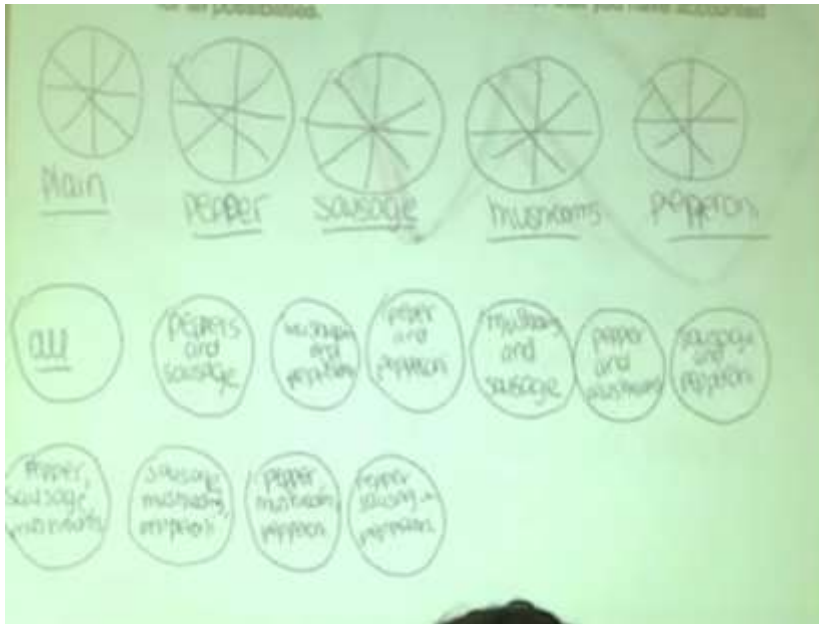 for all possibilities. that you have accounted
Plain
pepper
sausage
mushrooms
pepperoni
all
peppers
and
sausage
and
and
pepperoni
and
sausage
pepper
and
mushrooms
sausage
and
pepperoni
pepper,
sausage,
mushrooms
sausage
mushrooms,
pepperoni
pepper
mushroom,
pepperoni
pepper
sausage
pepperoni